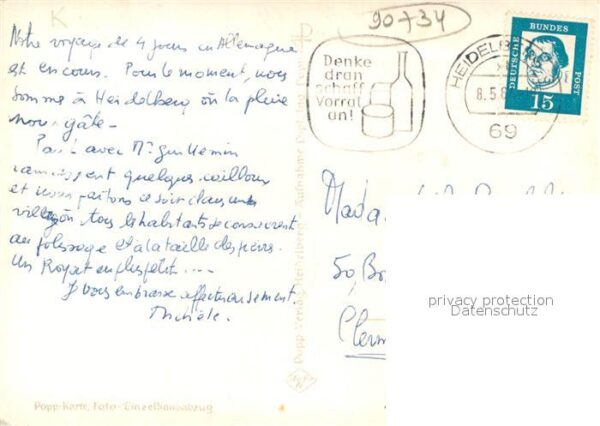 90+34
Notre voyage de 4 jours en Allemagne
est en cours. Pour le moment, nous
sommes à Heidelberg où la pluie
nous gâte.
Paul avec Mr Guillemin
ramassent quelques cailloux
et nous partons ce soir dans un
village où tous les habitants se consacrent
au polissage et à la taille des pierres.
Un Royat en plus petit ....
Je vous embrasse affectueusement
Michèle.
Popp-Karte, Foto-Einzelbildabzug
Popp-Verlag Heidelberg
Denke
dran
schaff
Vorrat
an!
HEIDELB
8.5.6
69
DEUTSCHE BUNDES POST
15
Mada
50, Bo
Clerm
privacy protection
Datenschutz